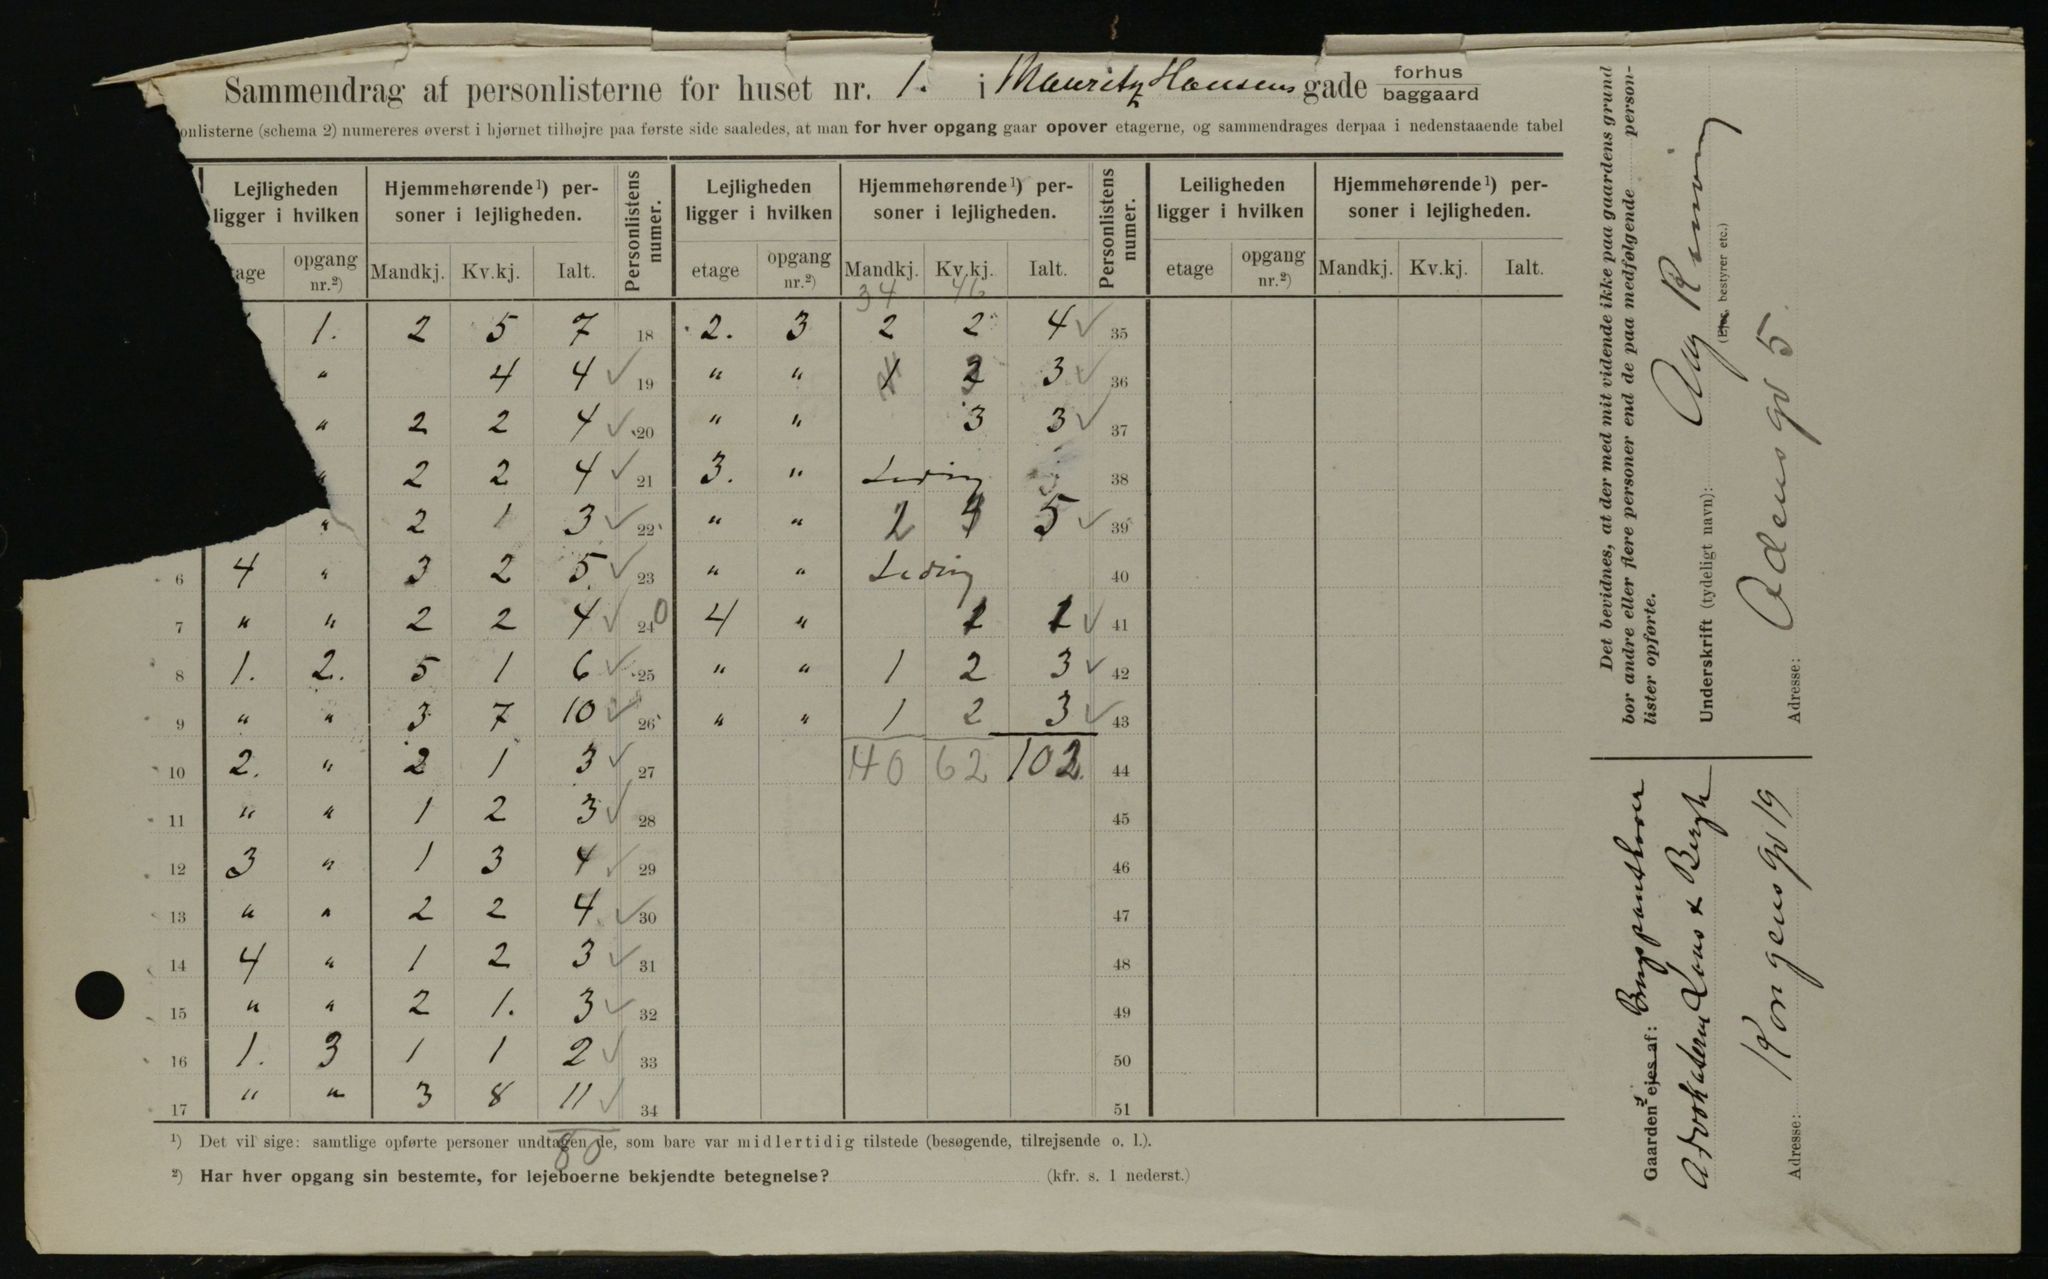 Sammendrag af personlisterne for huset nr. 1. i Mauritz Hansens gade forhus baggaard
onlisterne (schema 2) numereres øverst i hjørnet tilhøjre paa første side saaledes, at man for hver opgang gaar opover etagerne, og sammendrages derpaa i nedenstaaende tabel
Lejligheden ligger i hvilken Hjemmehørende¹) personer i lejligheden. Personlistens numer. Lejligheden ligger i hvilken Hjemmehørende¹) personer i lejligheden. Personlistens numer. Leiligheden ligger i hvilken Hjemmehørende¹) personer i lejligheden.
tage opgang nr.²) Mandkj. Kv.kj. Ialt. etage opgang nr.²) Mandkj. Kv.kj. Ialt. etage opgang nr.²) Mandkj. Kv.kj. Ialt.
34 46
1. 2 5 7 18 2. 3 2 2 4 ✓ 35
" 4 4 ✓ 19 " " 1 2 3 ✓ 36
" 2 2 4 ✓ 20 " " 3 3 ✓ 37
" 2 2 4 ✓ 21 3. " Ledig 38
" 2 1 3 ✓ 22 " " 2 5 ✓ 39
6 4 " 3 2 5 ✓ 23 " " Ledig 40
7 " " 2 2 4 ✓ 24 0 4 " 1 1 ✓ 41
8 1. 2. 5 1 6 ✓ 25 " " 1 2 3 ✓ 42
9 " " 3 7 10 ✓ 26 " " 1 2 3 ✓ 43
10 2. " 2 1 3 ✓ 27 40 62 102 44
11 " " 1 2 3 ✓ 28 45
12 3 " 1 3 4 ✓ 29 46
13 " " 2 2 4 ✓ 30 47
14 4 " 1 2 3 ✓ 31 48
15 " " 2 1. 3 ✓ 32 49
16 1. 3 1 1 2 ✓ 33 50
17 " " 3 8 11 ✓ 34 51
80
¹) Det vil sige: samtlige opførte personer undtagen de, som bare var midlertidig tilstede (besøgende, tilrejsende o. l.).
²) Har hver opgang sin bestemte, for lejeboerne bekjendte betegnelse? (kfr. s. 1 nederst.)
Det bevidnes, at der med mit vidende ikke paa gaardens grund
bor andre eller flere personer end de paa medfølgende person-
lister opførte.
Underskrift (tydeligt navn): Aug
(Ejer, bestyrer etc.)
Adresse: Odensgd 5.
Gaarden ejes af:
Advokaterne & Bergh
Adresse: Kongens gd 19